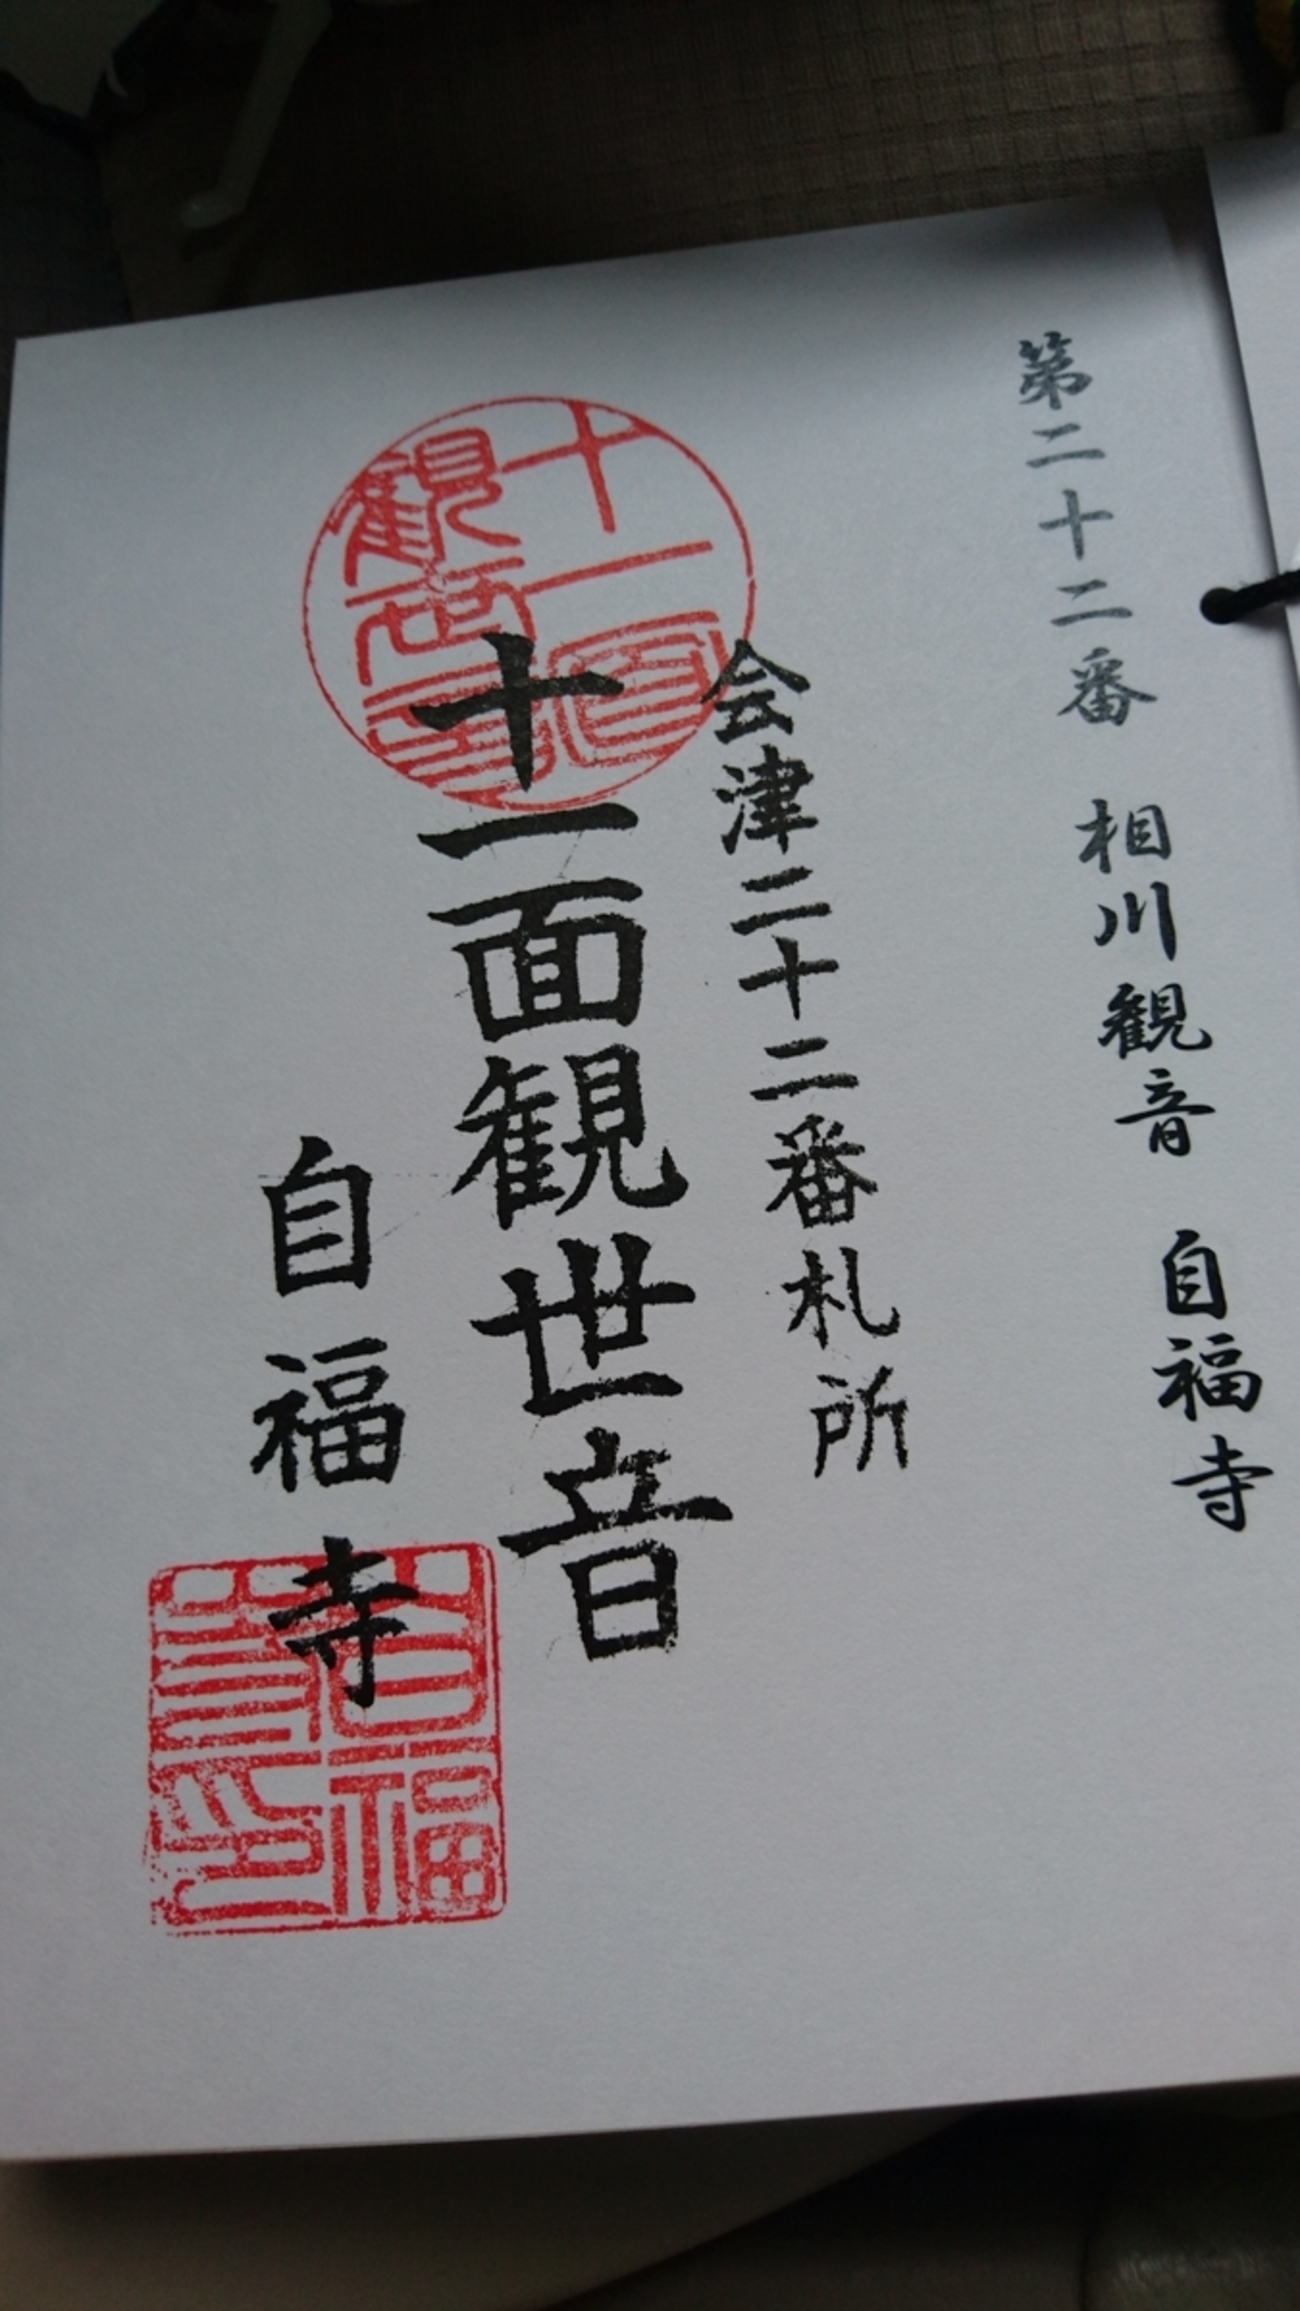 第二十二番 相川観音 自福寺
会津二十二番札所
十一面観世音
自福寺
十一面
観世音
自福
寺印